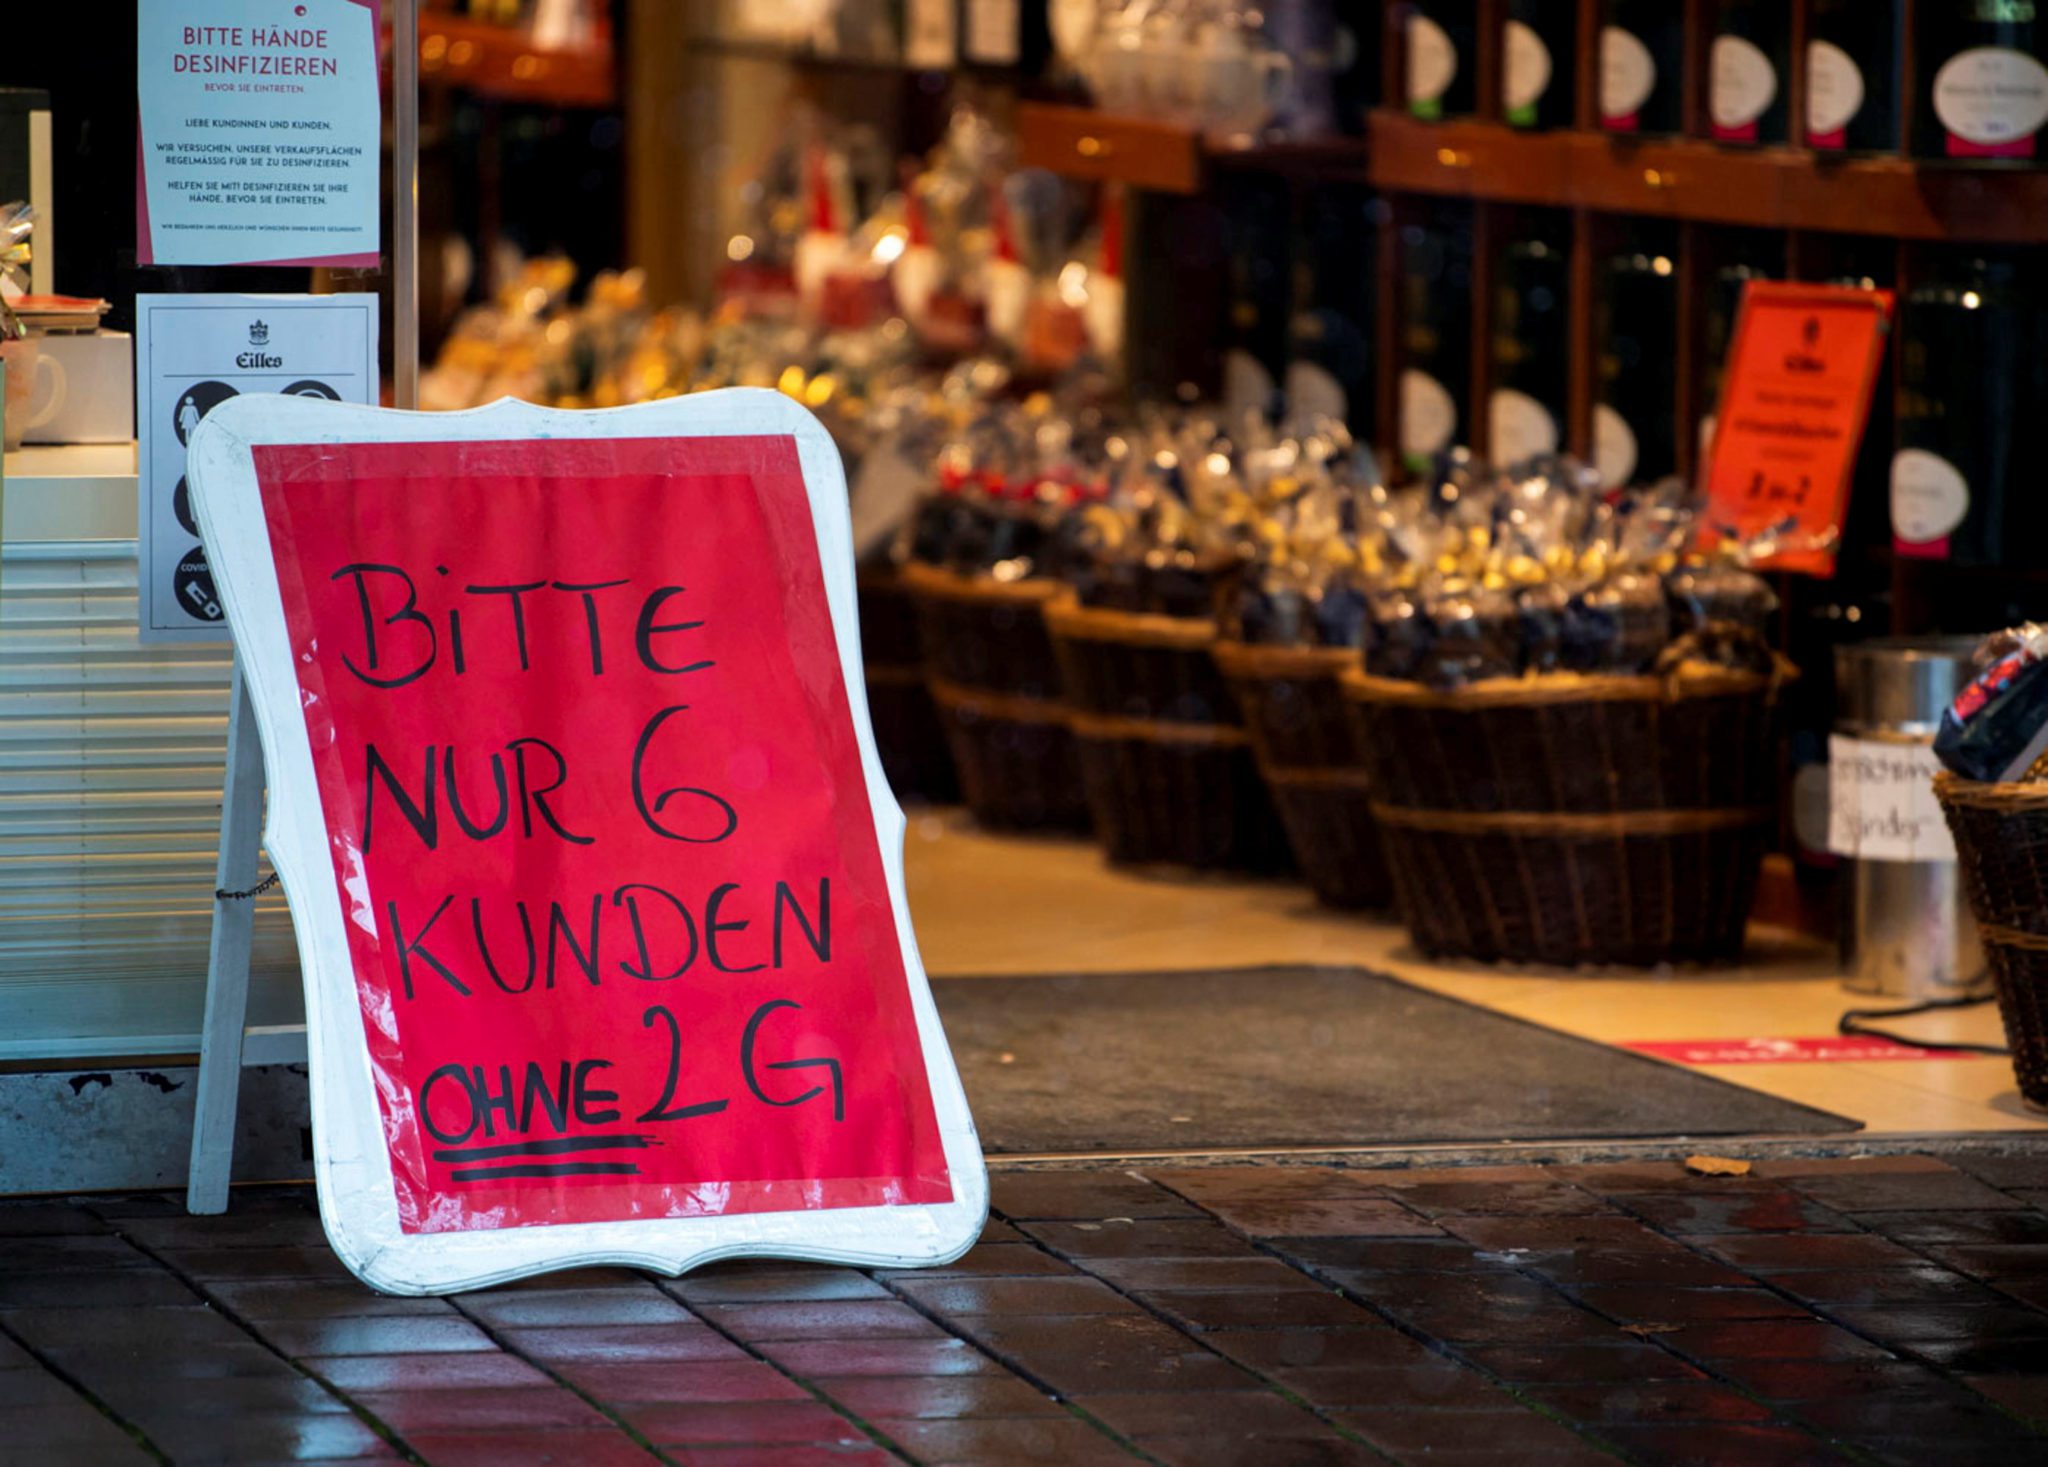 BITTE HÄNDE
DESINFIZIEREN
BEVOR SIE EINTRETEN.
LIEBE KUNDINNEN UND KUNDEN,
WIR VERSUCHEN, UNSERE VERKAUFSFLÄCHEN
REGELMÄSSIG FÜR SIE ZU DESINFIZIEREN.
HELFEN SIE MIT! DESINFIZIEREN SIE IHRE
HÄNDE, BEVOR SIE EINTRETEN.
WIR BEDANKEN UNS HERZLICH UND WÜNSCHEN IHNEN BESTE GESUNDHEIT!
Eilles
COVID
BiTTE
NUR 6
KUNDEN
OHNE 2G